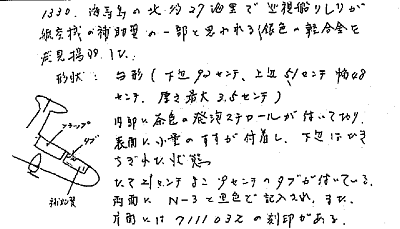 1330. 海青島の北 約27海里で巡視船りしりが
航空機の補助翼の一部と思われる銀色の軽合金を
発見揚収した。
形状: 台形(下辺92センチ、上辺51センチ 幅48
センチ、厚さ最大 3.5センチ)
内部に茶色の発泡スチロールが付いており、
表面に小量のすすが付着し、下辺はひき
ちぎれた状態
たて21センチ よこ9センチのタブが付いている。
両面に N-3と黒色で記入され、また、
片面には7111032の刻印がある。
フラップ
タブ
補助翼